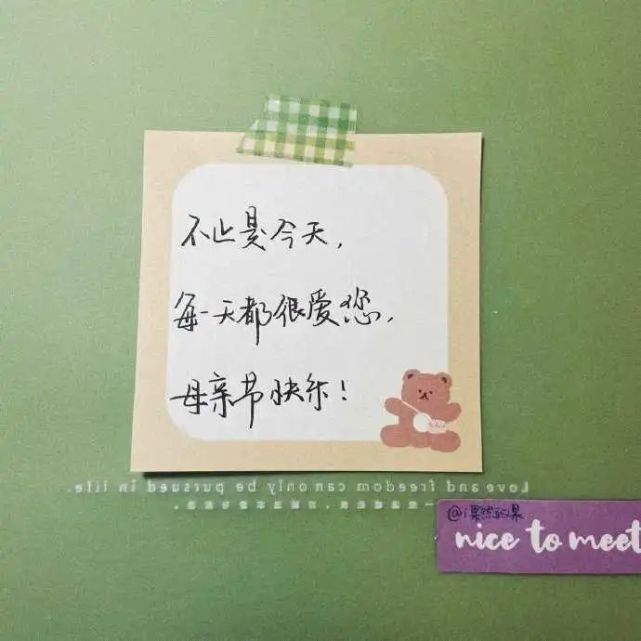 不止是今天，
每一天都很爱您，
母亲节快乐！
Love and freedom can only be pursued in life.
nice to meet